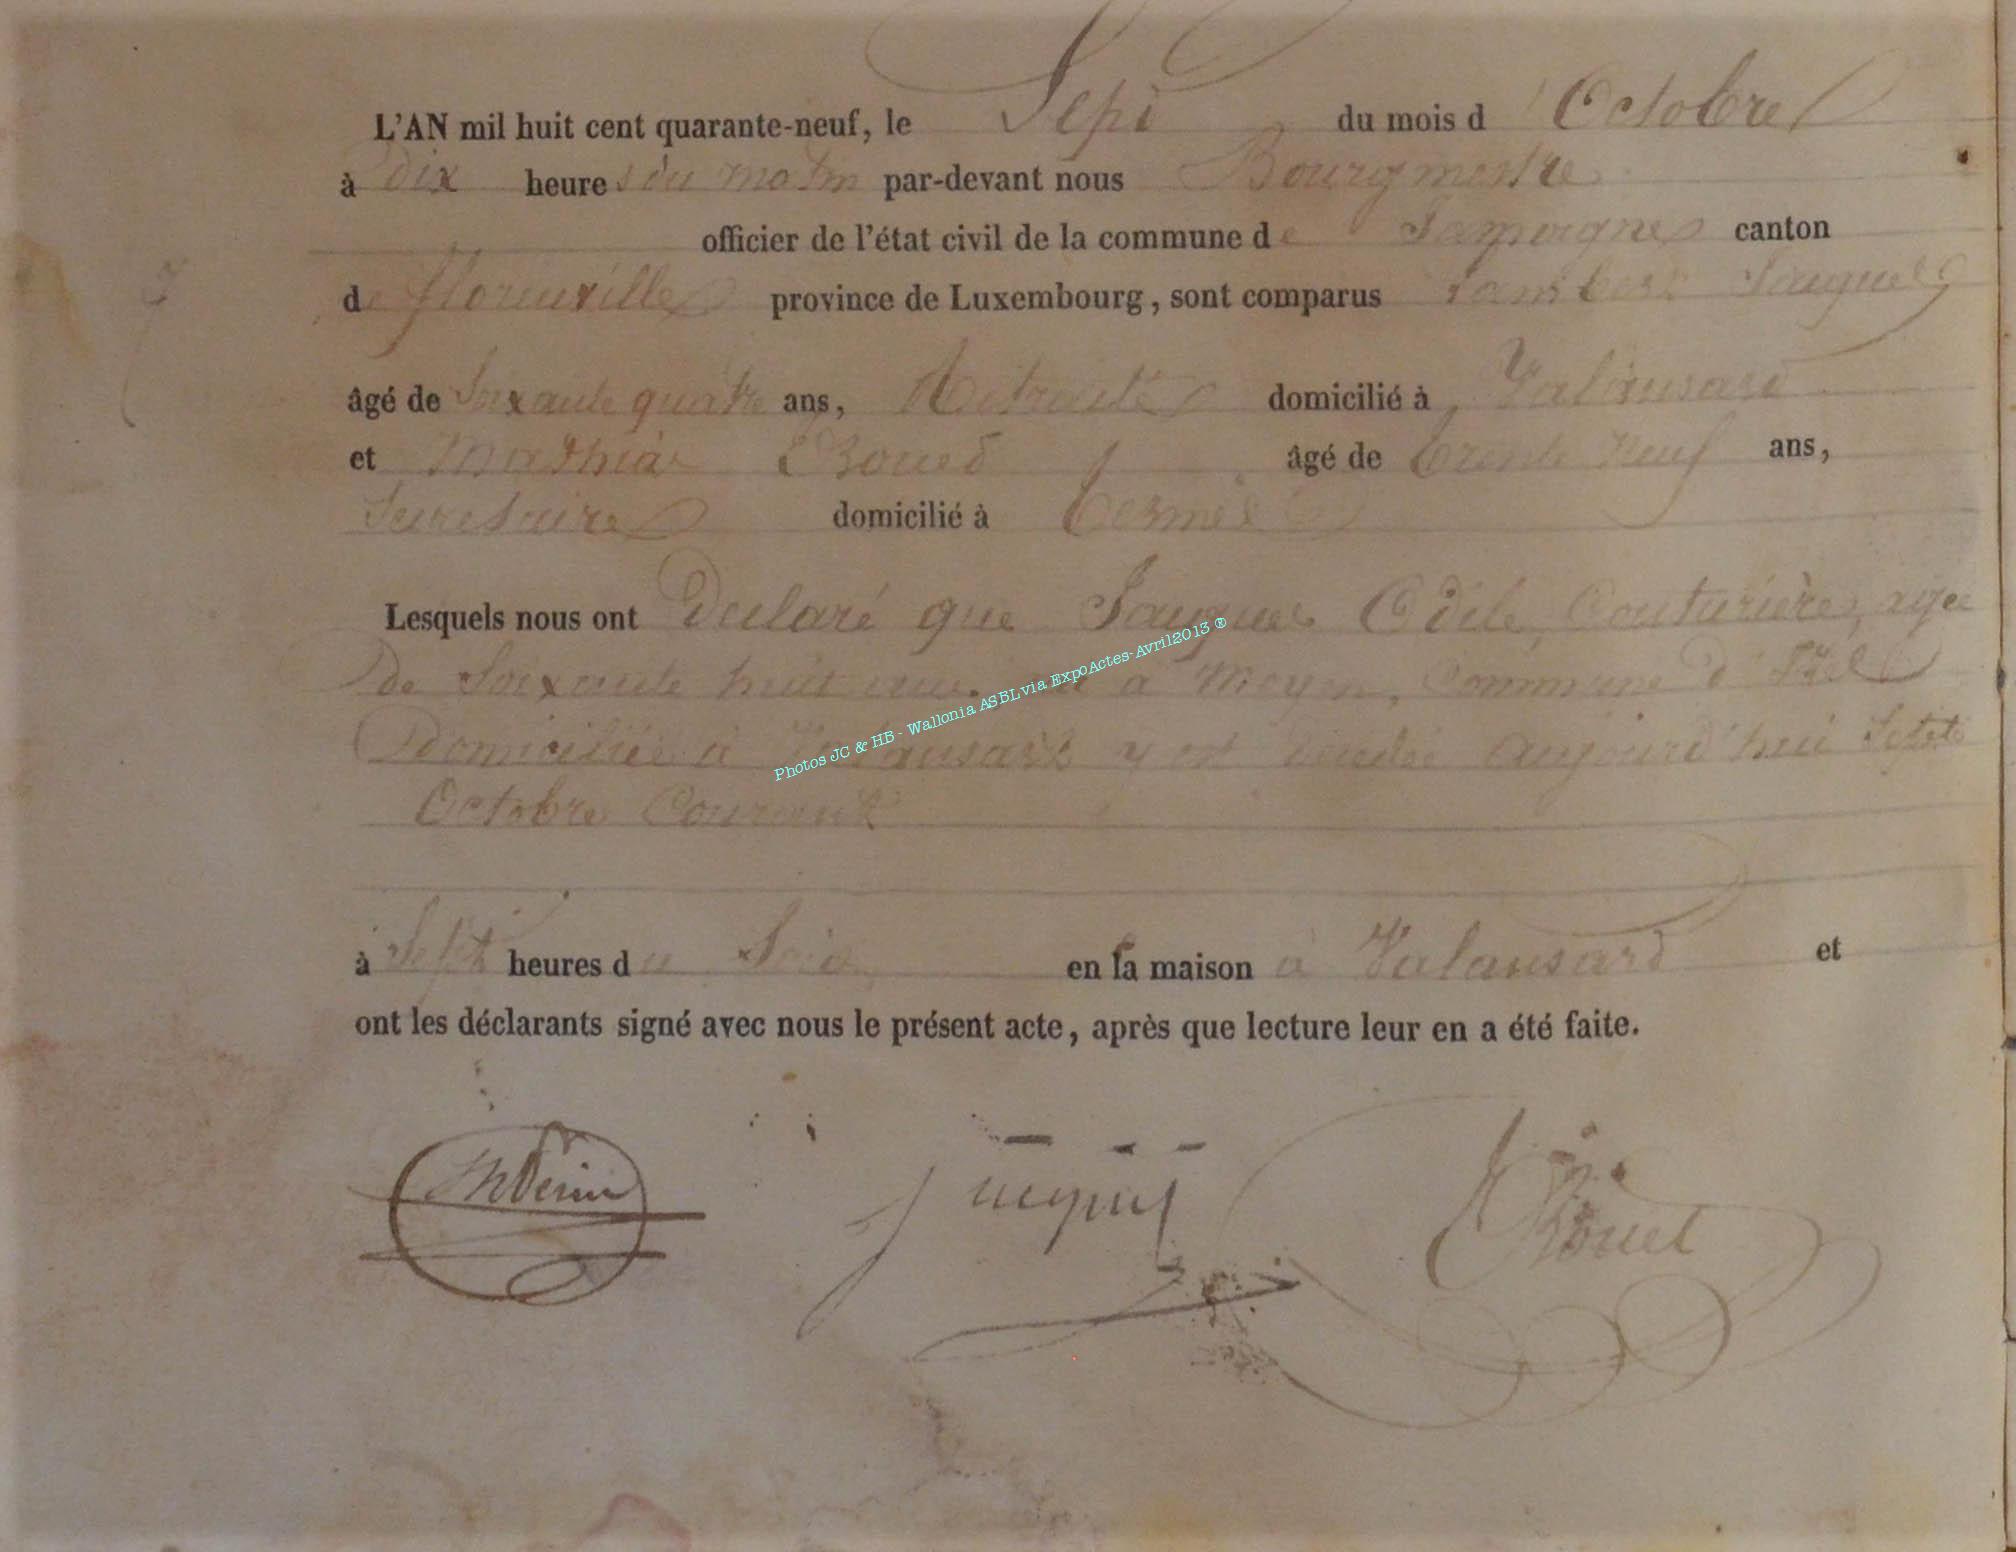 L'AN mil huit cent quarante-neuf, le Sept du mois d'Octobre
à dix heures du matin par-devant nous Bourgmestre
officier de l'état civil de la commune de Jamoigne canton
de florenville province de Luxembourg, sont comparus Lambert Jacques
âgé de Soixante quatre ans, Retraité domicilié à Valansard
et Mathias Rouel âgé de trente Neuf ans,
Secretaire domicilié à termes
Lesquels nous ont Declaré que Jacques Odile, Couturière, agée
de Soixante huit ans, née à Moyen, Commune d'Izel
Domiciliée à Valansard y est decedée aujourd'hui Sept
Octobre Courant
Photos JC & HB - Wallonia ASBL via ExpoActes-Avril2013 ®
à Sept heures du en sa maison à Valansard et
ont les déclarants signé avec nous le présent acte, après que lecture leur en a été faite.
Jacques
Rouel